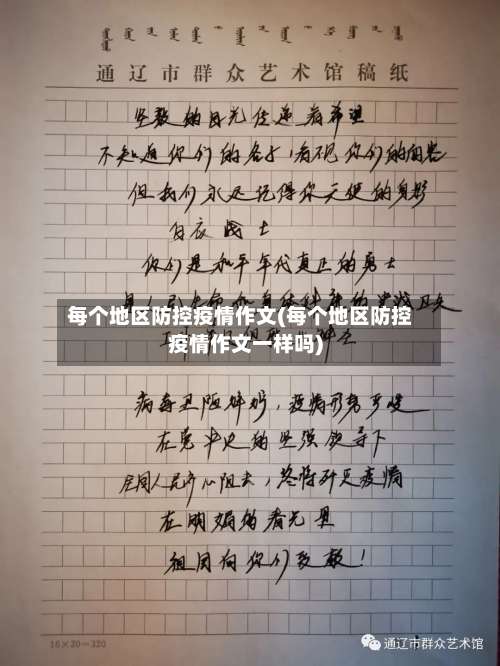 通辽市群众艺术馆稿纸
坚毅的目光传递着希望
不知道你们的名字，看不见你们的面容
但我们永远记得你天使的身影
白衣战士
你们是和平年代真正的勇士
每个地区防控疫情作文(每个地区防控
疫情作文一样吗)
病毒丑陋，疫情形势严峻
在党中央的坚强领导下
全国人民齐心阻击，终将歼灭疫情
在明媚的春光里
祖国向你们致敬！
16×20=320
通辽市群众艺术馆